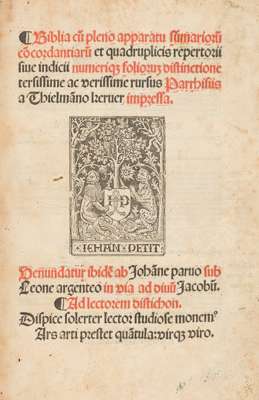 ¶Biblia cū pleno apparatu sūmariorū
cōcordantiarū et quadruplicis repertorii
siue indicii numeriqȝ foliorum distinctione
tersissime ac verissime rursus Parrhisiis
a Thielmāno keruer impressa.
I P
IEHAN PETIT
Uenundatur ibidē ab Johāne paruo sub
Leone argenteo in via ad diuū Jacobū.
¶Ad lectorem distichon.
Dispice solerter lector studiose monemˀ
Ars arti prestet quātula: virqȝ viro.